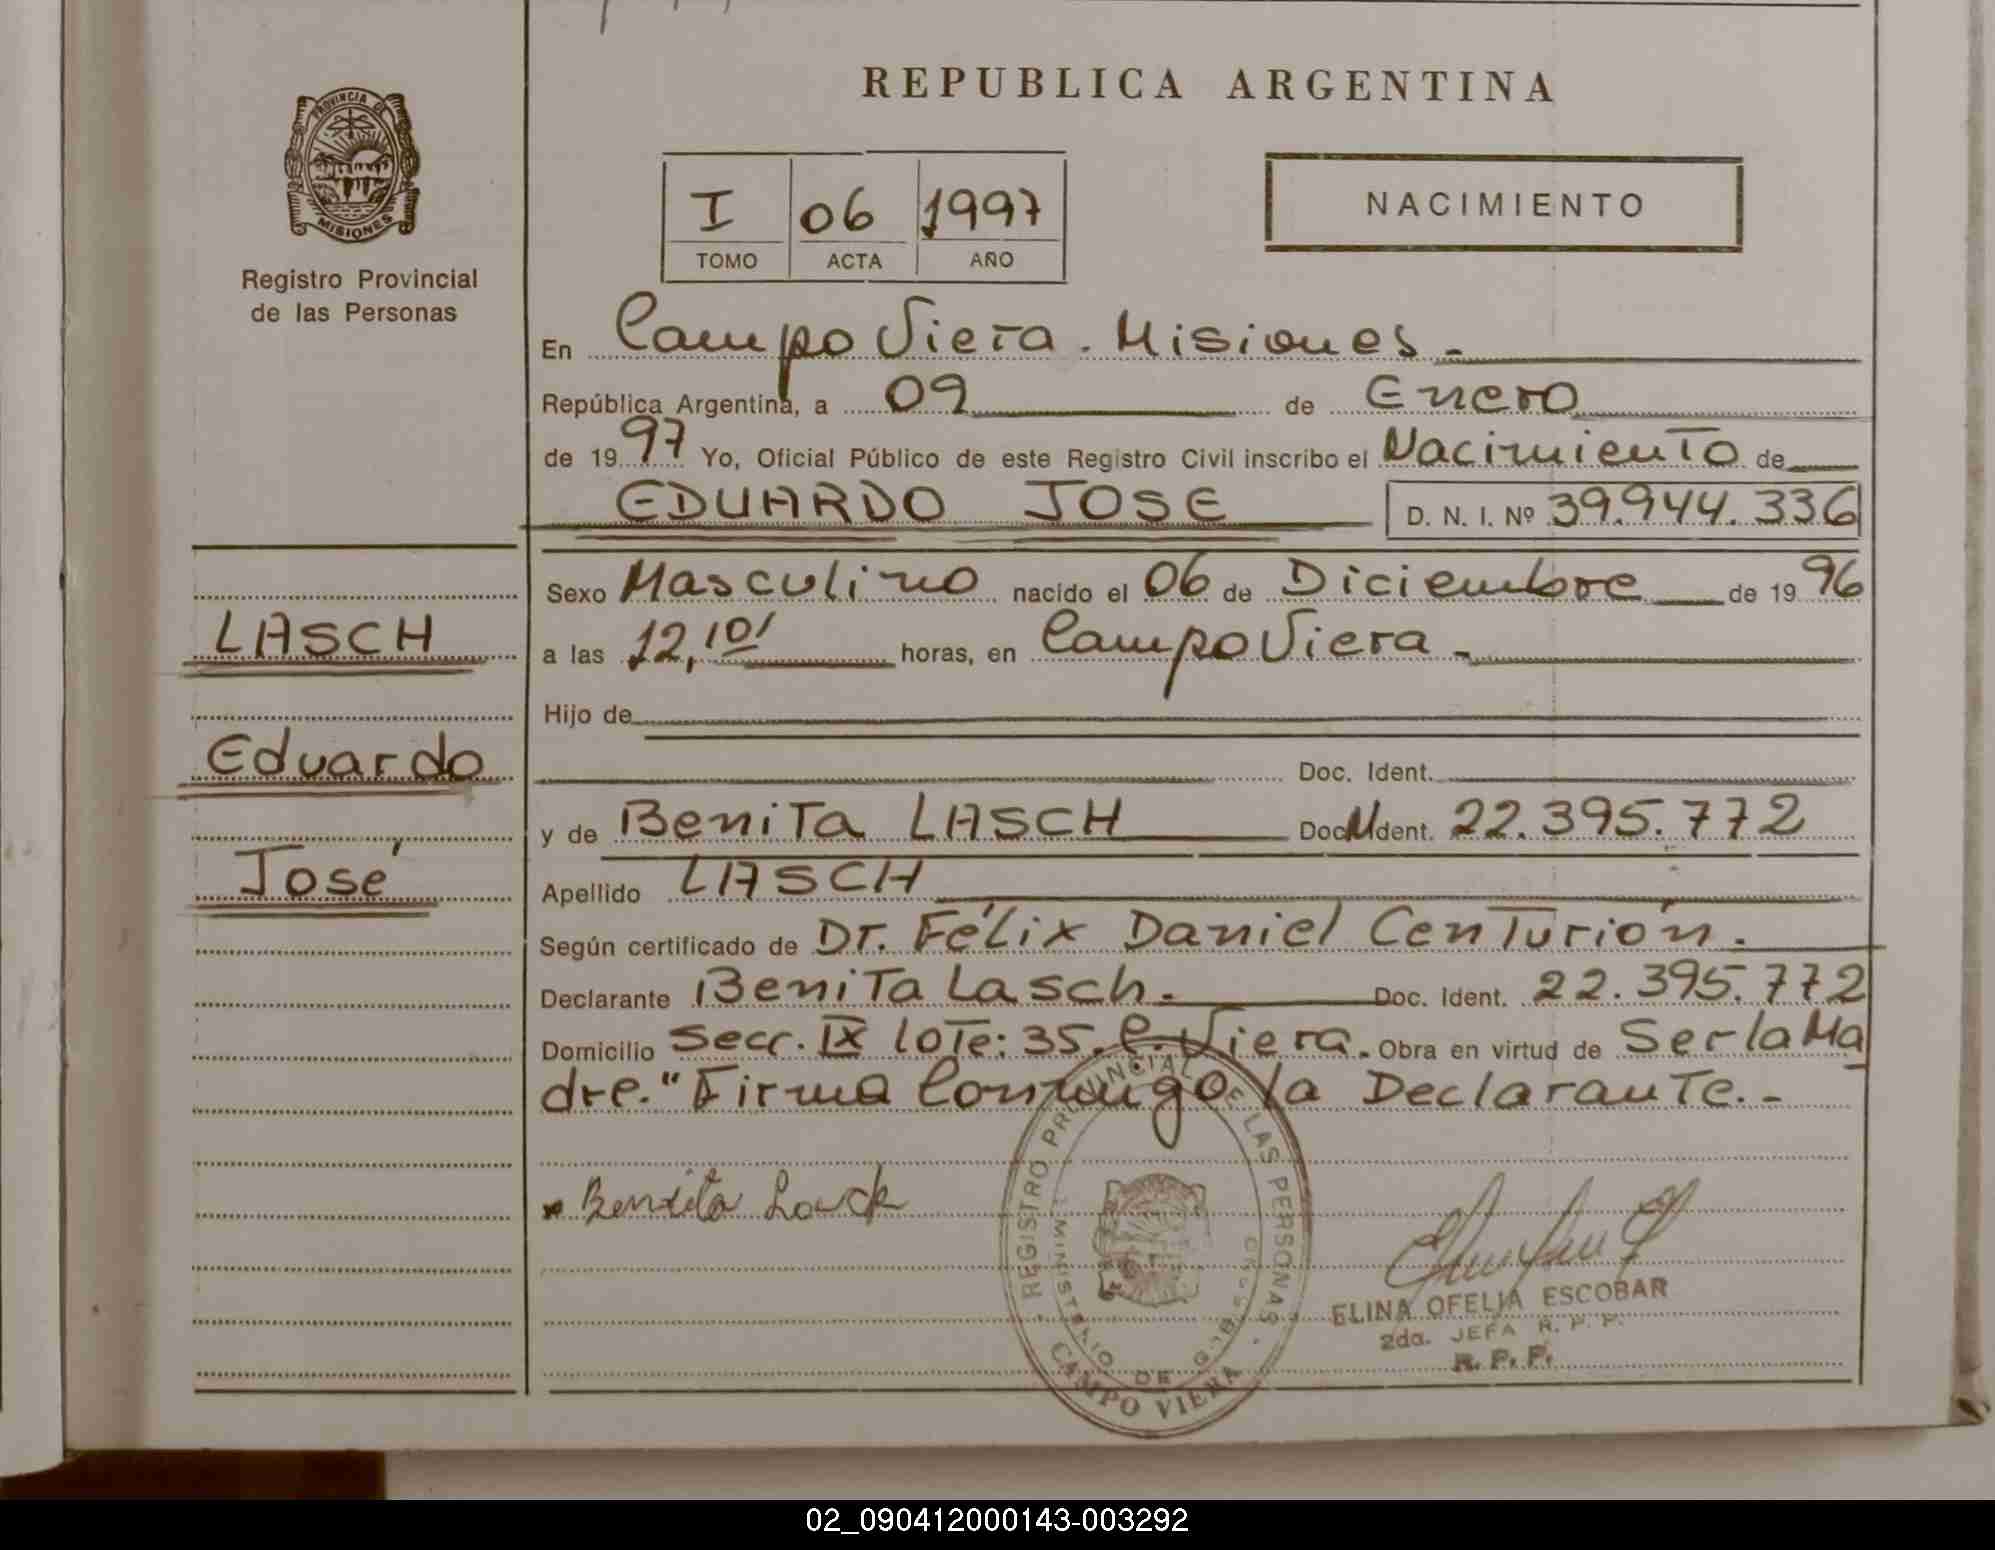 REPUBLICA ARGENTINA
PROVINCIA DE
MISIONES
Registro Provincial
de las Personas
I 06 1997
TOMO ACTA AÑO
NACIMIENTO
En Campo Viera. Misiones.-
República Argentina, a 09 de Enero
de 1997 Yo, Oficial Público de este Registro Civil inscribo el Nacimiento de
EDUARDO JOSE D. N. I. Nº 39.944.336
LASCH
Eduardo
José
Sexo Masculino nacido el 06 de Diciembre de 1996
a las 12,10' horas, en Campo Viera.-
Hijo de
Doc. Ident.
y de Benita LASCH Doc. Ident. 22.395.772
Apellido LASCH
Según certificado de Dr. Félix Daniel Centurión.
Declarante Benita Lasch.- Doc. Ident. 22.395.772
Domicilio Secc. IX lote: 35. C. Viera. Obra en virtud de Ser la Ma
dre." Firma Conmigo la Declarante.-
REGISTRO PROVINCIAL DE LAS PERSONAS
MINISTERIO DE
CAMPO VIERA
Benita Lasch
ELINA OFELIA ESCOBAR
2da. JEFA R. P. P.
R. P. P.
02_090412000143-003292